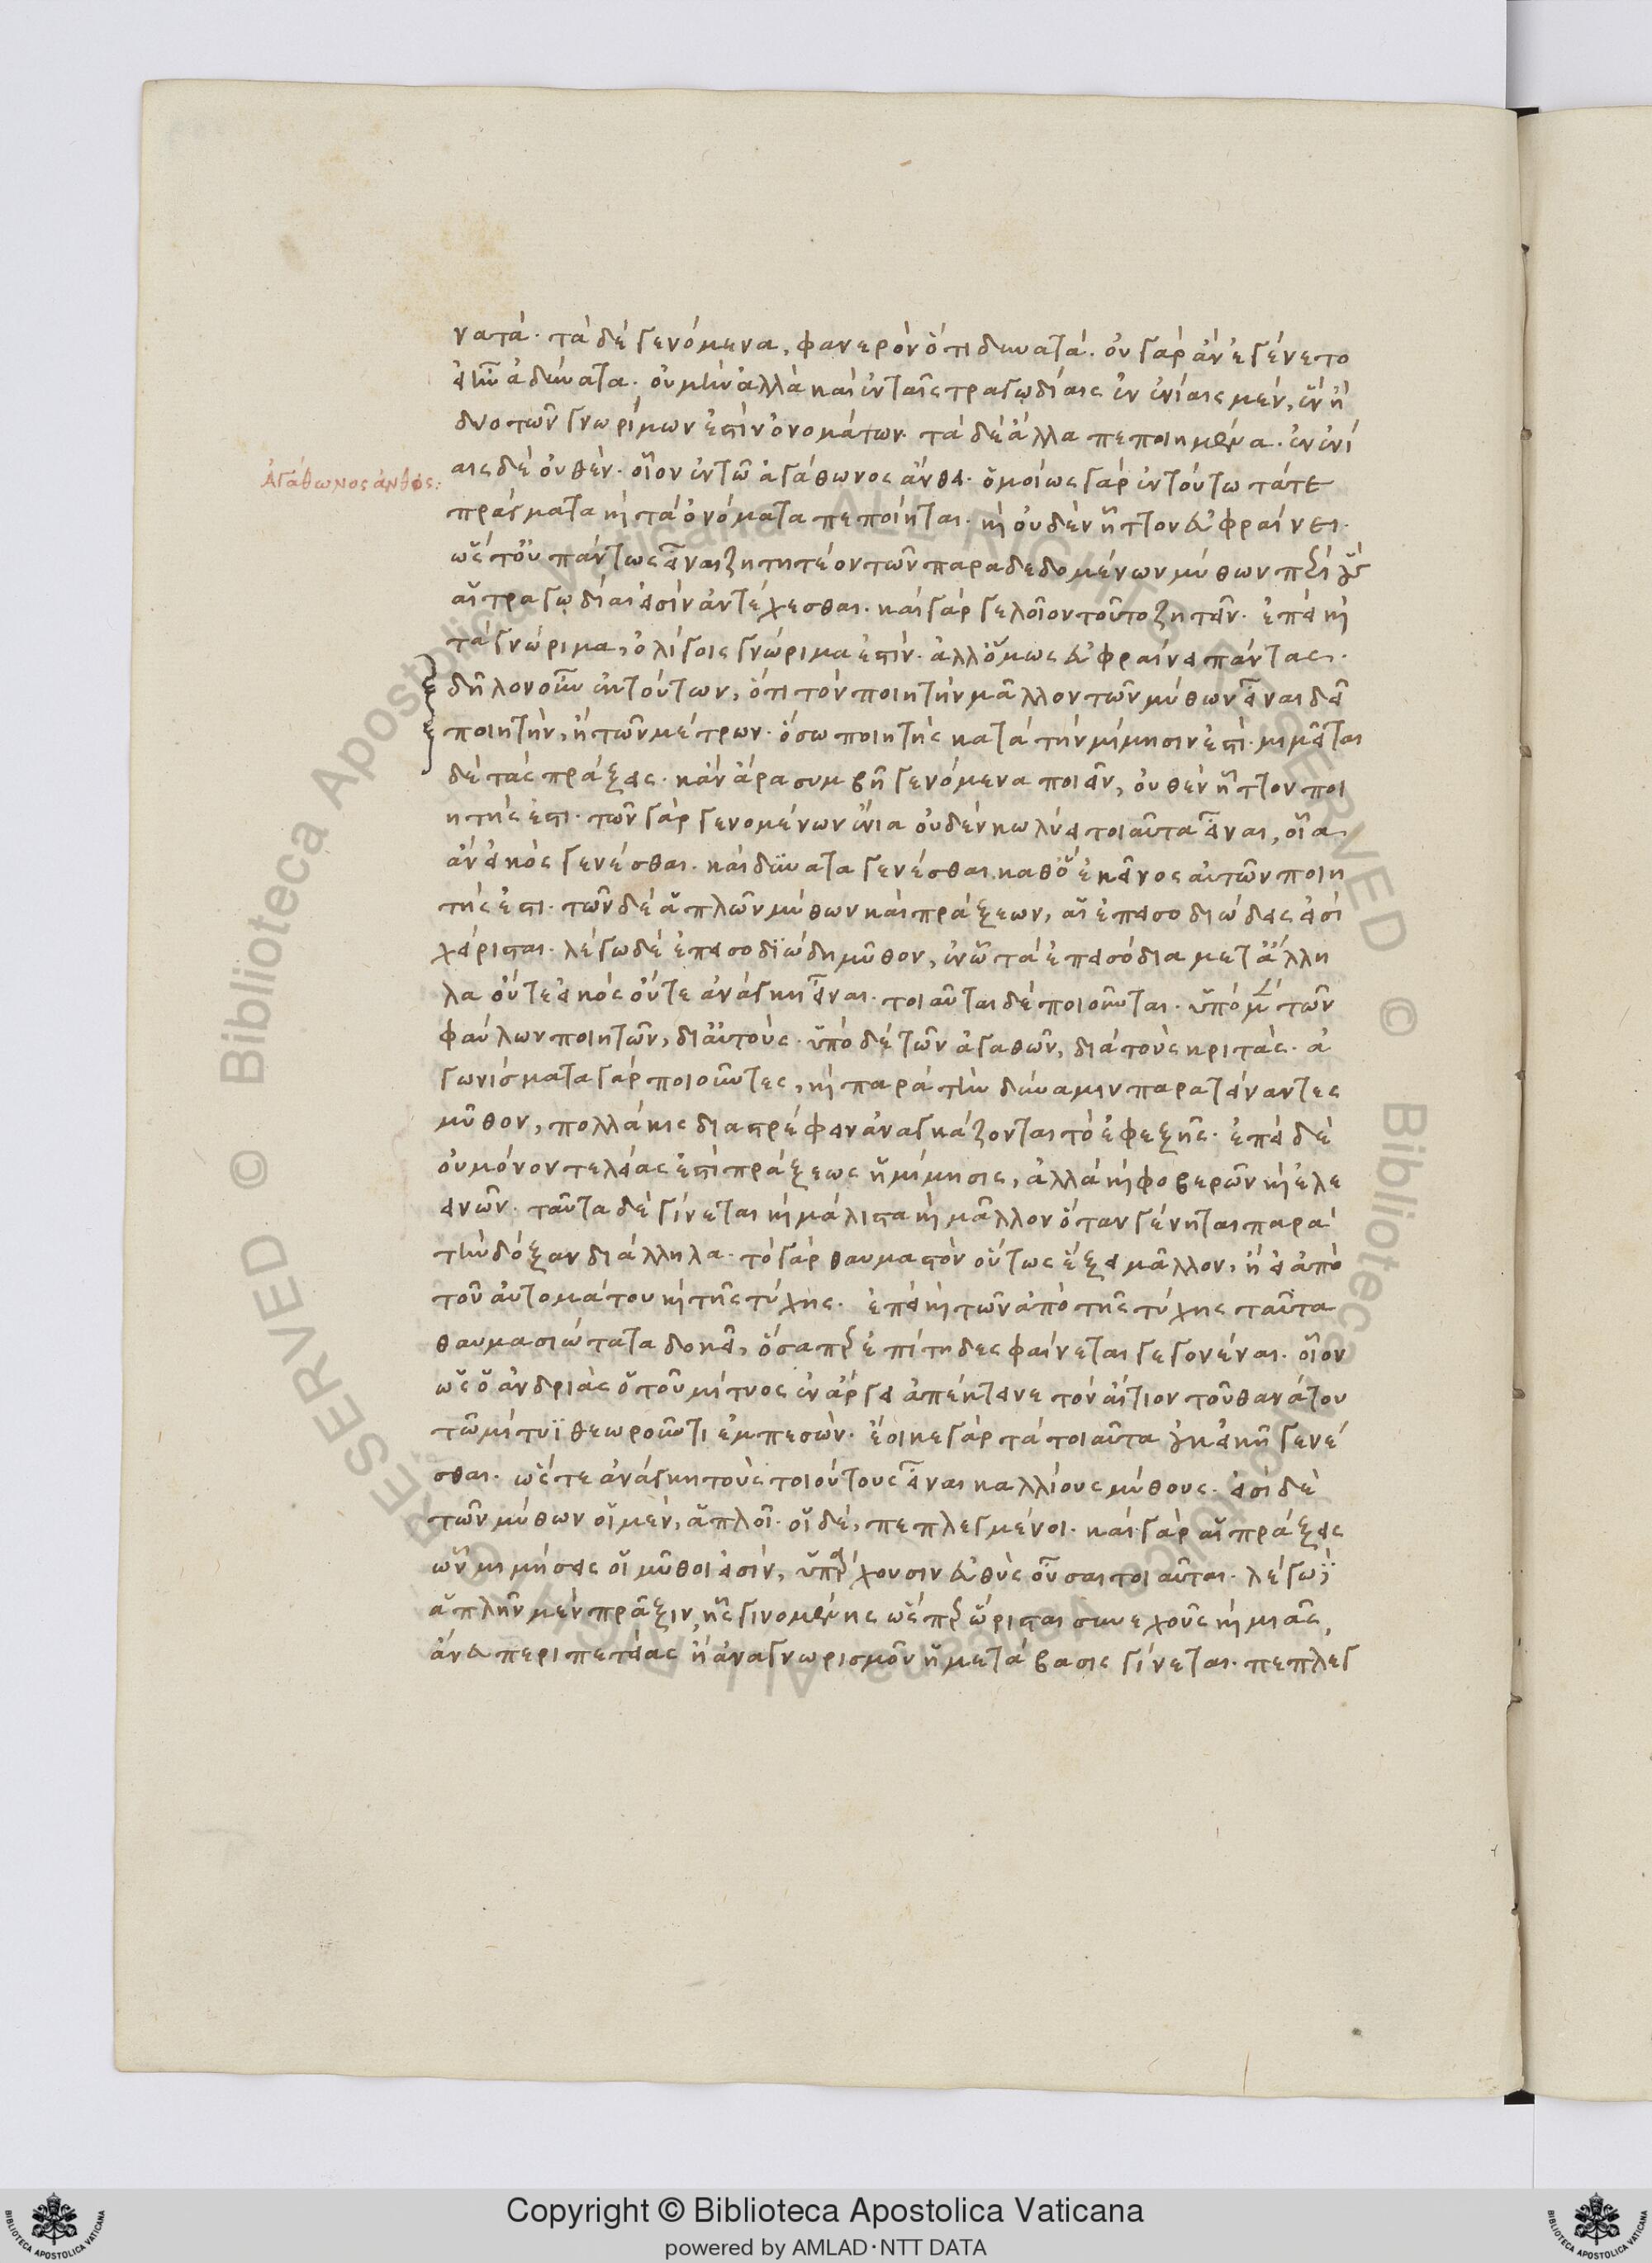 νατά· τὰ δὲ γενόμενα, φανερὸν ὅτι δυνατά. οὐ γὰρ ἂν ἐγένετο
εἰ ἦν ἀδύνατα. οὐ μὴν ἀλλὰ καὶ ἐν ταῖς τραγῳδίαις ἐν ἐνίαις μὲν, ἓν ἢ
δύο τῶν γνωρίμων ἐστὶν ὀνομάτων. τὰ δὲ ἄλλα πεποιημένα. ἐν ἐνί
Ἀγάθωνος ἄνθος:
αις δὲ οὐθέν. οἷον ἐν τῶ ἀγάθωνος ἄνθει. ὁμοίως γὰρ ἐν τούτω τά τε
πράγματα καὶ τὰ ὀνόματα πεποίηται. καὶ οὐδὲν ἧττον εὐφραίνει.
ὥστ' οὐ πάντως εἶναι ζητητέον τῶν παραδεδομένων μύθων περὶ οὓς
αἱ τραγῳδίαι εἰσὶν ἀντέχεσθαι. καὶ γὰρ γελοῖον τοῦτο ζητεῖν. ἐπεὶ καὶ
τὰ γνώριμα, ὀλίγοις γνώριμα ἐστίν. ἀλλ' ὅμως εὐφραίνει πάντας.
δῆλον οὖν ἐκ τούτων, ὅτι τὸν ποιητὴν μᾶλλον τῶν μύθων εἶναι δεῖ
ποιητὴν, ἢ τῶν μέτρων. ὅσω ποιητὴς κατὰ τὴν μίμησιν ἐστι. μιμεῖται
δὲ τὰς πράξεις. κἂν ἄρα συμβῆ γενόμενα ποιεῖν, οὐθὲν ἧττον ποι
ητής ἐστι. τῶν γὰρ γενομένων ἔνια οὐδὲν κωλύει τοιαῦτα εἶναι, οἷα
ἂν εἰκὸς γενέσθαι. καὶ δυνατὰ γενέσθαι. καθ' ὃ ἐκεῖνος αὐτῶν ποιη
τής ἐστι. τῶν δὲ ἁπλῶν μύθων καὶ πράξεων, αἱ ἐπεισοδιώδεις εἰσὶ
χείρισται. λέγω δὲ ἐπεισοδιώδη μῦθον, ἐν ὧ τὰ ἐπεισόδια μετ' ἄλλη
λα οὔτε εἰκὸς οὔτε ἀνάγκη εἶναι. τοιαῦται δὲ ποιοῦνται. ὑπὸ μὲν τῶν
φαύλων ποιητῶν, δι' αὐτούς. ὑπὸ δὲ τῶν ἀγαθῶν, διὰ τοὺς κριτάς. ἀ
γωνίσματα γὰρ ποιοῦντες, καὶ παρὰ τὴν δύναμιν παρατείναντες
μῦθον, πολλάκις διαστρέφειν ἀναγκάζονται τὸ ἐφεξῆς. ἐπεὶ δὲ
οὐ μόνον τελείας ἐστὶ πράξεως ἡ μίμησις, ἀλλὰ καὶ φοβερῶν καὶ ἐλε
εινῶν. ταῦτα δὲ γίνεται καὶ μάλιστα καὶ μᾶλλον ὅταν γένηται παρὰ
τὴν δόξαν δι' ἄλληλα. τὸ γὰρ θαυμαστὸν οὕτως ἕξει μᾶλλον, ἢ εἰ ἀπὸ
τοῦ αὐτομάτου καὶ τῆς τύχης. ἐπεὶ καὶ τῶν ἀπὸ τῆς τύχης ταῦτα
θαυμασιώτατα δοκεῖ, ὅσα ὥσπερ ἐπίτηδες φαίνεται γεγονέναι. οἷον
ὡς ὁ ἀνδριὰς ὁ τοῦ μίτυος ἐν ἄργει ἀπέκτεινε τὸν αἴτιον τοῦ θανάτου
τῶ μίτυϊ θεωροῦντι ἐμπεσών. ἔοικε γὰρ τὰ τοιαῦτα οὐκ εἰκῆ γενέ
σθαι. ὥστε ἀνάγκη τοὺς τοιούτους εἶναι καλλίους μύθους. εἰσὶ δὲ
τῶν μύθων οἱ μὲν, ἁπλοῖ. οἱ δὲ, πεπλεγμένοι. καὶ γὰρ αἱ πράξεις
ὧν μιμήσεις οἱ μῦθοι εἰσὶν, ὑπάρχουσιν εὐθὺς οὖσαι τοιαῦται. λέγω δὲ
ἁπλῆν μὲν πρᾶξιν, ἧς γινομένης ὥσπερ ὥρισται συνεχοῦς καὶ μιᾶς,
ἄνευ περιπετείας ἢ ἀναγνωρισμοῦ ἡ μετάβασις γίνεται. πεπλεγ
Copyright © Biblioteca Apostolica Vaticana
powered by AMLAD·NTT DATA